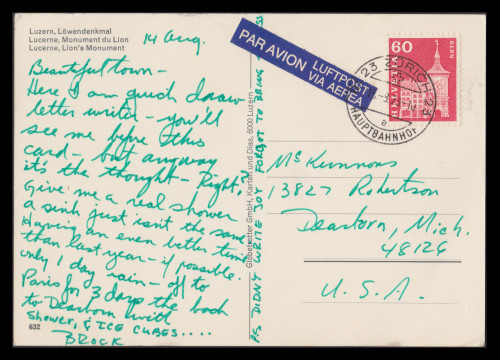 Luzern, Löwendenkmal
Lucerne, Monument du Lion
Lucerne, Lion's Monument
14 Aug.
Beautiful town –
Here I am quick draw
letter writer – you'll
see me before this
card – but anyway
it's the thought – Right?
Give me a real shower
a sink just isn't the same
Having an even better time
than last year – if possible.
only 1 day rain – off to
Paris for 3 days the back
to Dearborn with
shower, & ICE CUBES....
BROCK
632
Globetrotter GmbH, Karten und Dias, 6000 Luzern
P.S DIDN'T WRITE JOY FORGOT TO BRING
PAR AVION
LUFTPOST
VIA AEREA
60
HELVETIA
BERN
23 ZÜRICH 23
HAUPTBAHNHOF
a
McKinnons
13827 Robertson
Dearborn, Mich.
48126
U.S.A.